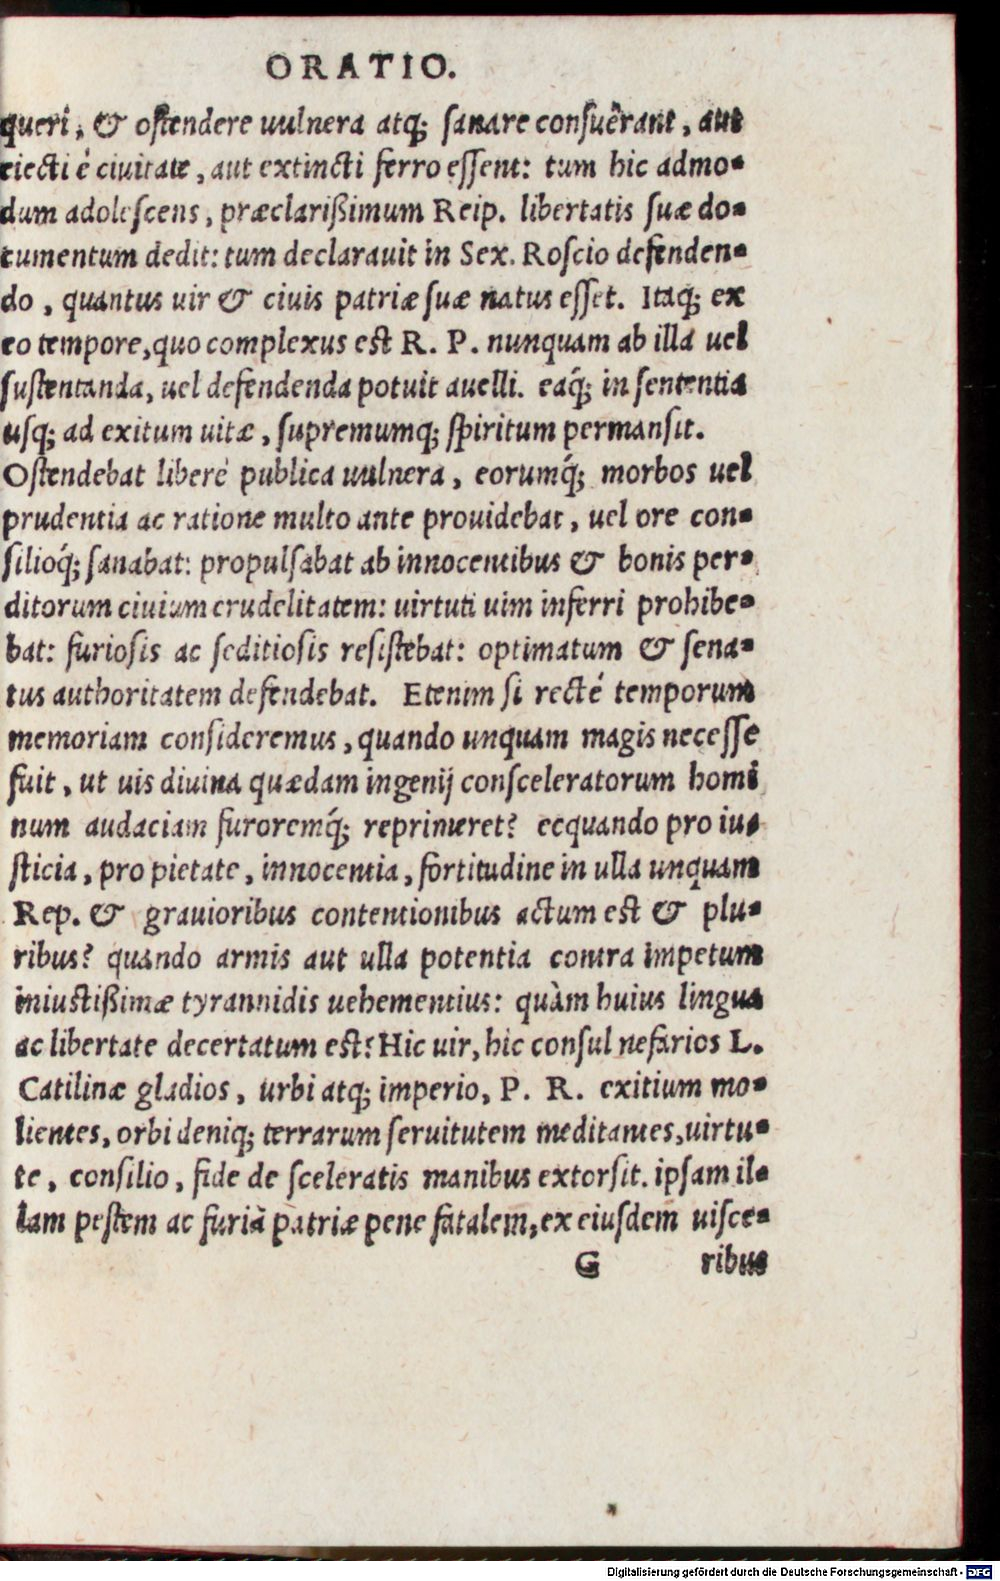 ORATIO.
queri, & ostendere uulnera atq; sanare consuêrant, aut
eiecti è ciuitate, aut extincti ferro essent: tum hic admo-
dum adolescens, præclarißimum Reip. libertatis suæ do-
cumentum dedit: tum declarauit in Sex. Roscio defenden-
do, quantus uir & ciuis patriæ suæ natus esset. Itaq; ex
eo tempore, quo complexus est R. P. nunquam ab illa uel
sustentanda, uel defendenda potuit auelli. eaq́; in sententia
usq; ad exitum uitæ, supremumq; spiritum permansit.
Ostendebat liberè publica uulnera, eorumq́; morbos uel
prudentia ac ratione multo ante prouidebat, uel ore con-
silioq́; sanabat: propulsabat ab innocentibus & bonis per-
ditorum ciuium crudelitatem: uirtuti uim inferri prohibe-
bat: furiosis ac seditiosis resistebat: optimatum & sena-
tus authoritatem defendebat. Etenim si recté temporum
memoriam consideremus, quando unquam magis necesse
fuit, ut uis diuina quædam ingenij consceleratorum homi
num audaciam furoremq́; reprimeret? ecquando pro iu-
sticia, pro pietate, innocentia, fortitudine in ulla unquam
Rep. & grauioribus contentionibus actum est & plu-
ribus? quando armis aut ulla potentia contra impetum
iniustißimæ tyrannidis uehementius: quàm huius lingua
ac libertate decertatum est? Hic uir, hic consul nefarios L.
Catilinæ gladios, urbi atq; imperio, P. R. exitium mo-
lientes, orbi deniq; terrarum seruitutem meditantes, uirtu-
te, consilio, fide de sceleratis manibus extorsit. ipsam il-
lam pestem ac furiā patriæ pene fatalem, ex eiusdem uisce-
G ribus
Digitalisierung gefördert durch die Deutsche Forschungsgemeinschaft - DFG